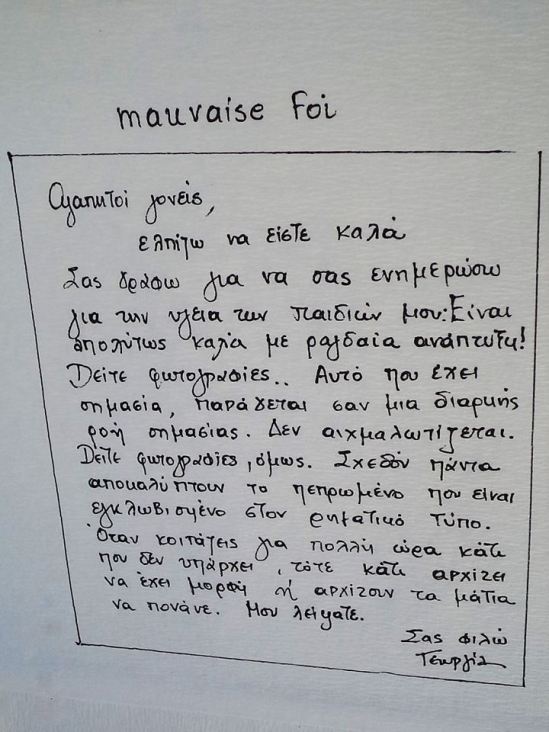 mauvaise foi
Αγαπητοί γονείς,
ελπίζω να είστε καλά
Σας γράφω για να σας ενημερώσω
για την υγεία των παιδιών μου: Είναι
απολύτως καλά με ραγδαία ανάπτυξη!
Δείτε φωτογραφίες.. Αυτό που έχει
σημασία, παράγεται σαν μια διαρκής
ροή σημασίας. Δεν αιχμαλωτίζεται.
Δείτε φωτογραφίες, όμως. Σχεδόν πάντα
αποκαλύπτουν το πεπρωμένο που είναι
εγκλωβισμένο στον ρηματικό τύπο.
Όταν κοιτάζεις για πολλή ώρα κάτι
που δεν υπάρχει, τότε κάτι αρχίζει
να έχει μορφή ή αρχίζουν τα μάτια
να πονάνε. Μου λείψατε.
Σας φιλώ
Γεωργία